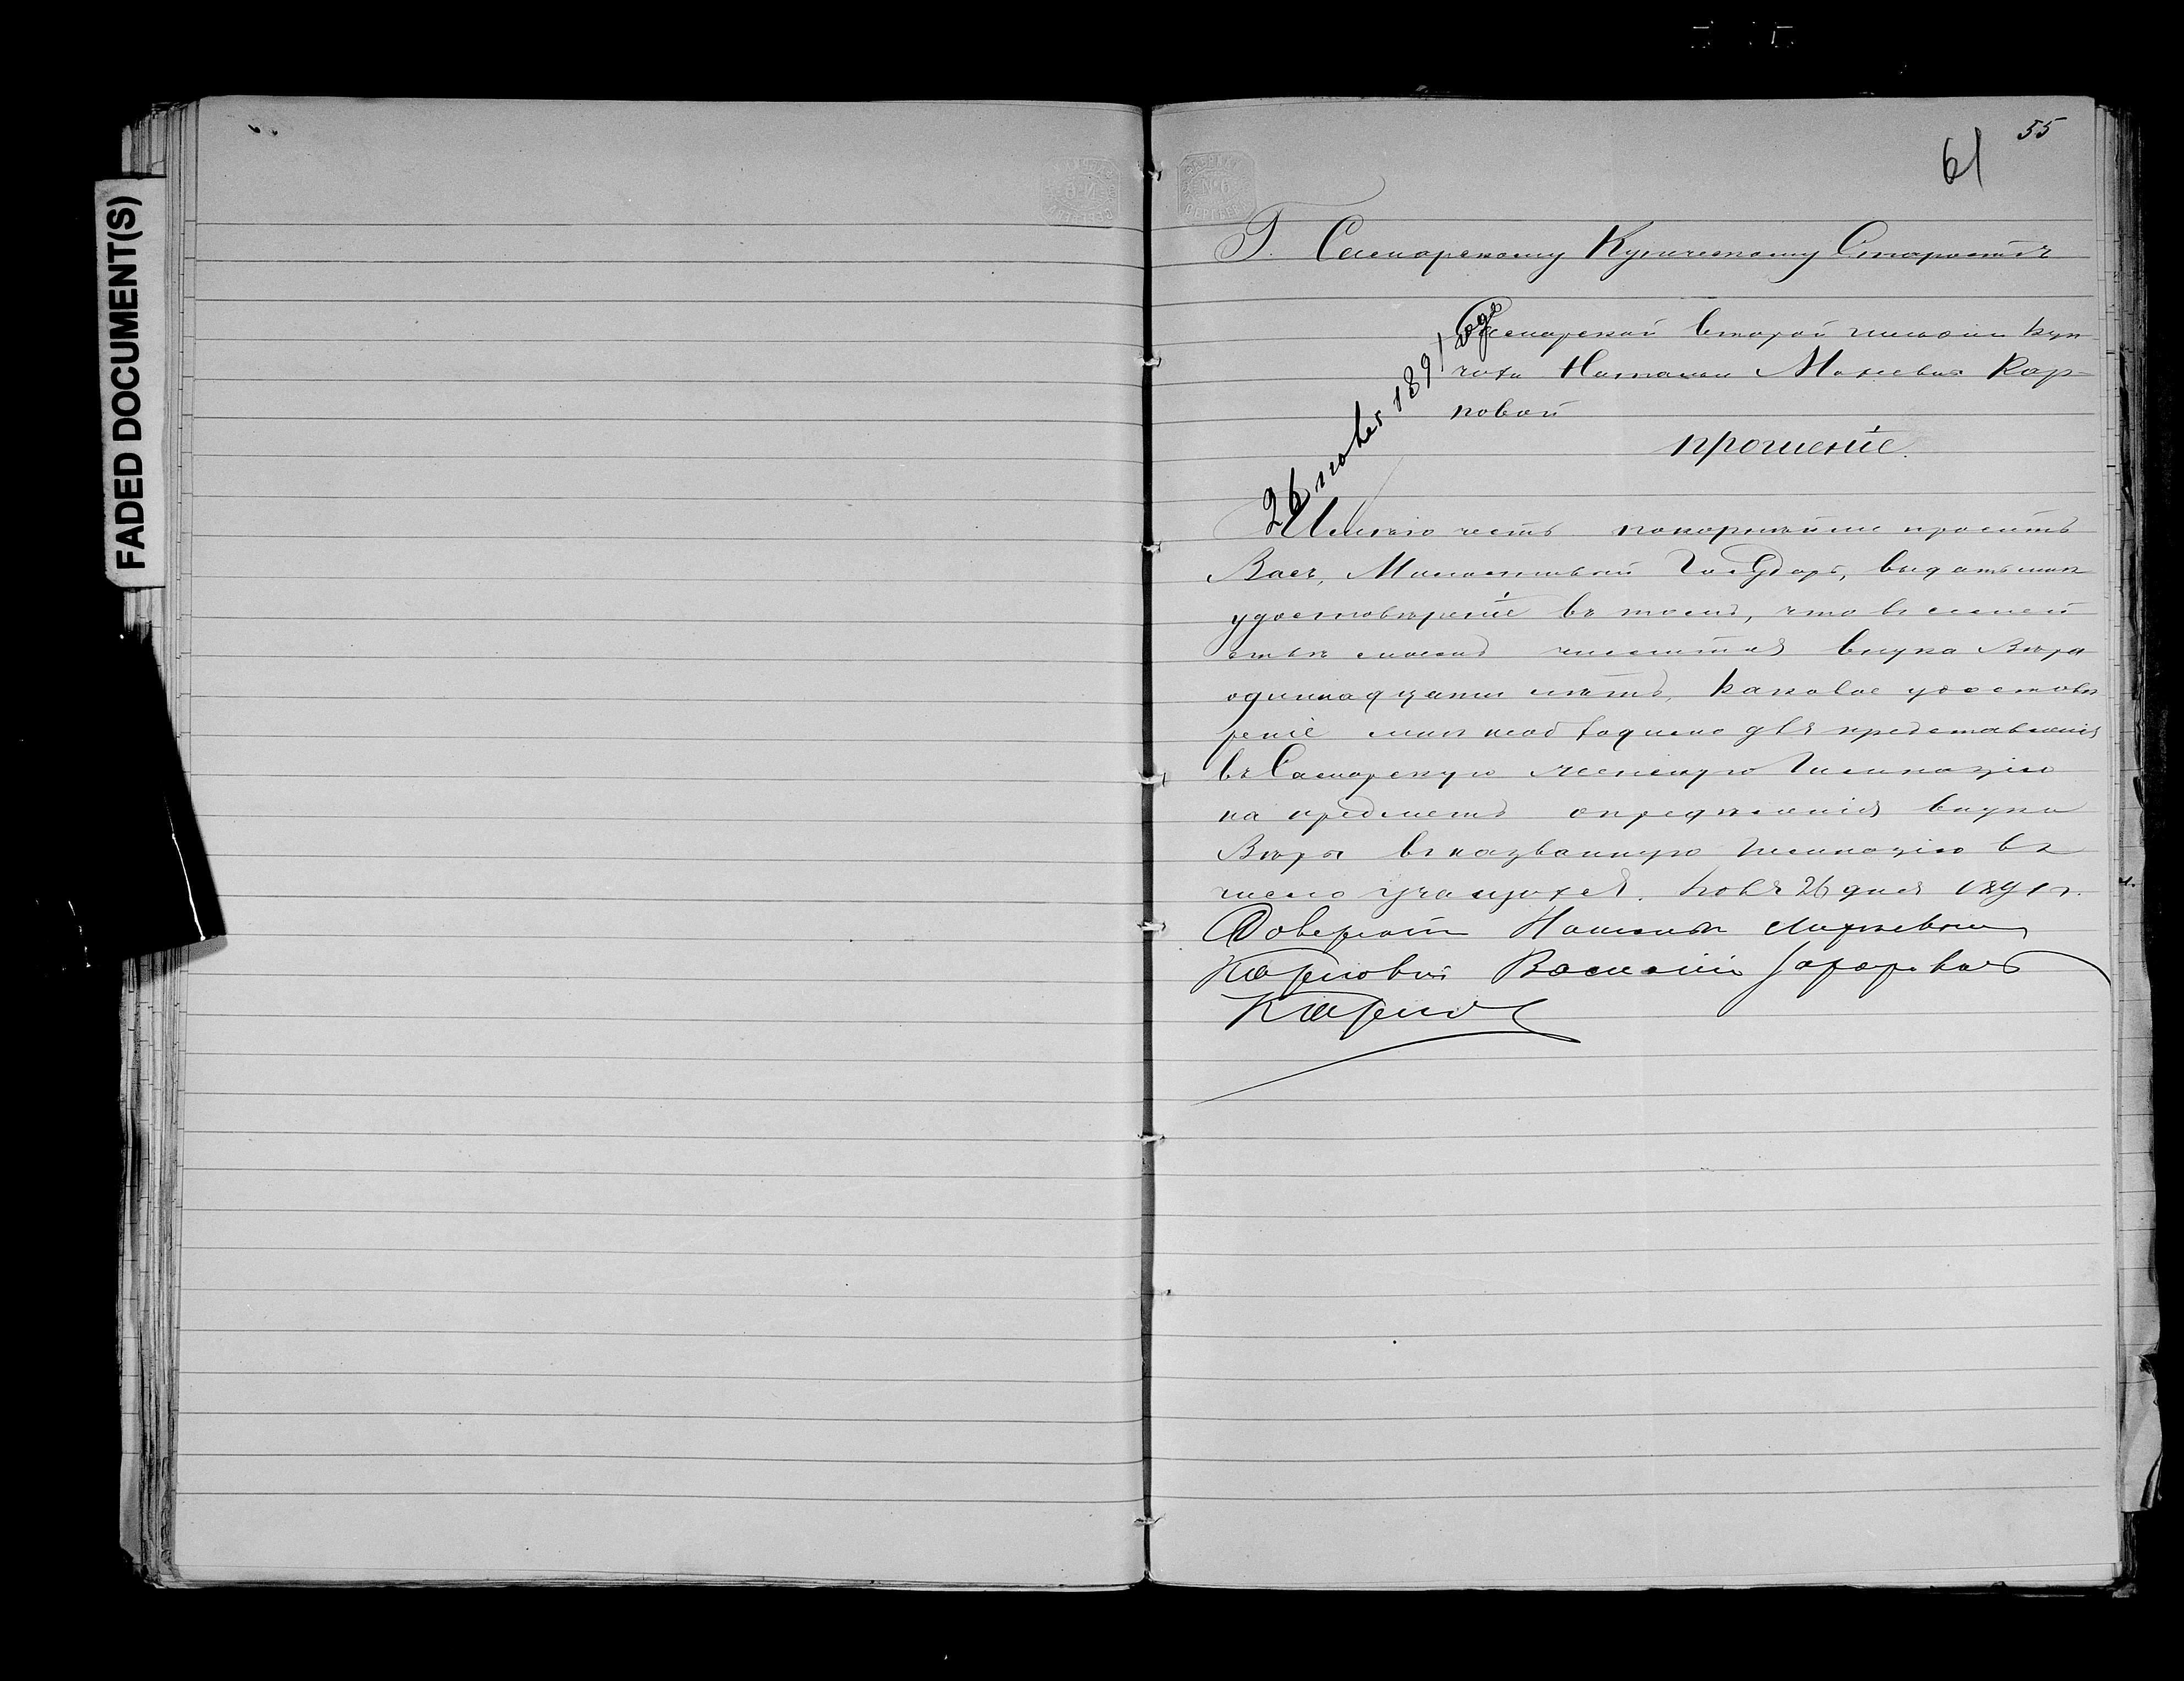 FADED DOCUMENT(S)
55
61
Г. Самарскому Купеческому Старостѣ
26 ноябр 1891 года
Самарской второй гильдіи куп
чихи Натальи Михеевны Кар-
повой
прошеніе.
Имѣю честь покорнѣйше просить
Васъ, Милостивый Государь, выдать мнѣ
удостовѣреніе въ томъ, что въ семей
ствѣ моемъ числится внука Вѣра
одиннадцати лѣтъ, каковое удостовѣ
реніе мнѣ необходимо для представленія
въ Самарскую женскую Гимназію
на предметъ опредѣленія внуки
Вѣры въ названную гимназію въ
число учащихся. Ноябя 26 дня 1891 г.
Доверенный Натальи Михѣевны
Карповой Василій Захаровичъ
Карпов